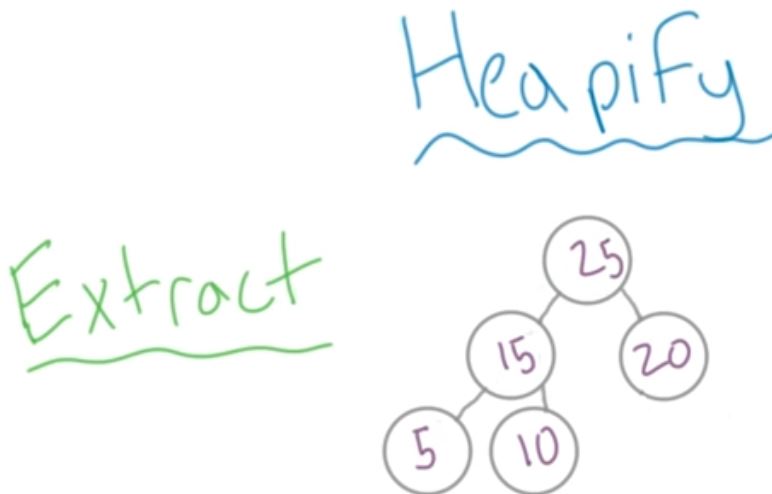 Heapify
Extract
25
15 20
5 10